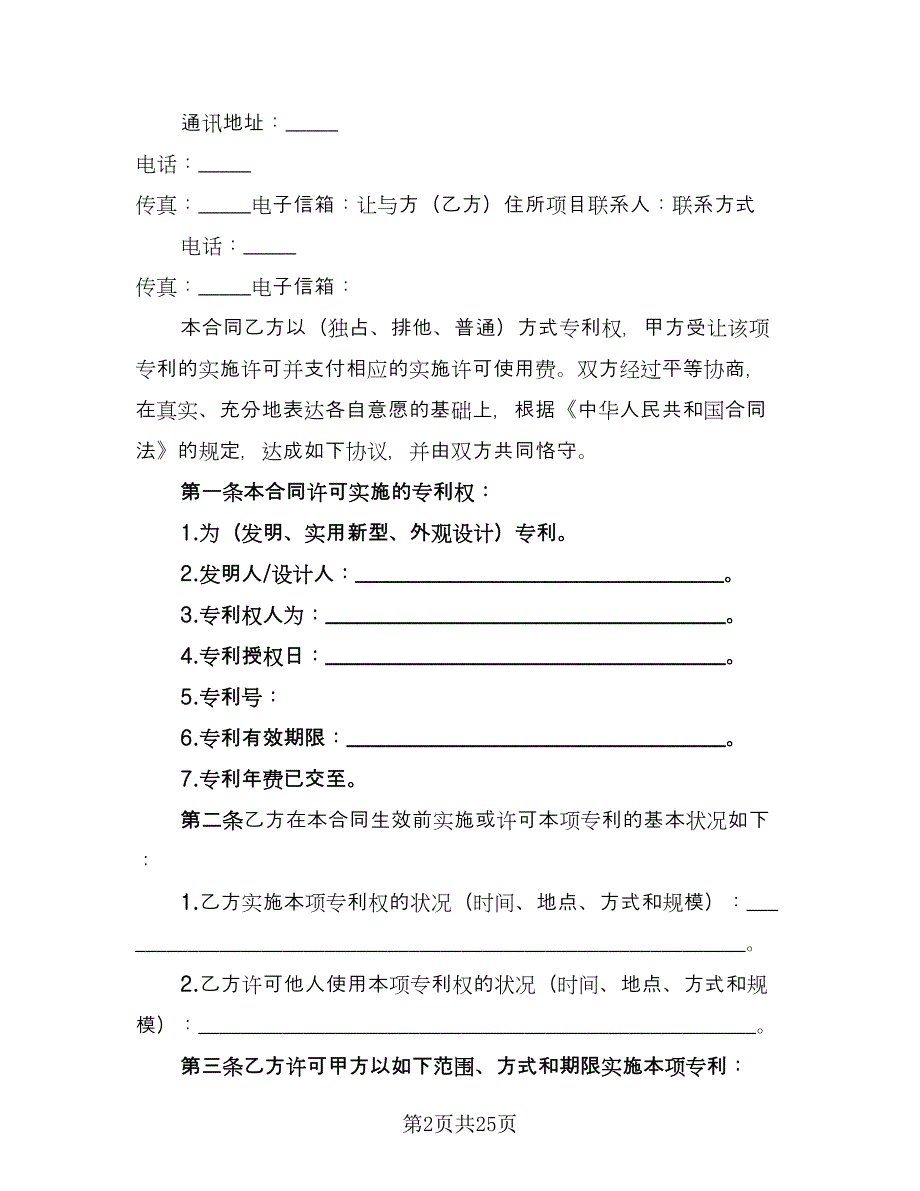 通讯地址：_____
电话：_____
传真：_____电子信箱：让与方（乙方）住所项目联系人：联系方式
电话：_____
传真：_____电子信箱：
本合同乙方以（独占、排他、普通）方式专利权，甲方受让该项
专利的实施许可并支付相应的实施许可使用费。双方经过平等协商，
在真实、充分地表达各自意愿的基础上，根据《中华人民共和国合同
法》的规定，达成如下协议，并由双方共同恪守。
第一条本合同许可实施的专利权：
1.为（发明、实用新型、外观设计）专利。
2.发明人/设计人：___________________________________。
3.专利权人为：______________________________________。
4.专利授权日：______________________________________。
5.专利号：
6.专利有效期限：____________________________________。
7.专利年费已交至。
第二条乙方在本合同生效前实施或许可本项专利的基本状况如下
：
1.乙方实施本项专利权的状况（时间、地点、方式和规模）：___
__________________________________________________________。
2.乙方许可他人使用本项专利权的状况（时间、地点、方式和规
模）：_____________________________________________________。
第三条乙方许可甲方以如下范围、方式和期限实施本项专利：
第2页共25页